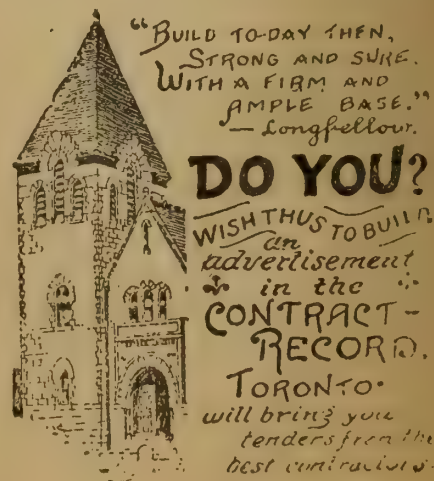 "BUILD TO-DAY THEN,
STRONG AND SURE.
WITH A FIRM AND
AMPLE BASE."
— Longfellow.
DO YOU?
WISH THUS TO BUILD
an
advertisement
in the
CONTRACT-
RECORD.
TORONTO.
will bring you
tenders from the
best contractors